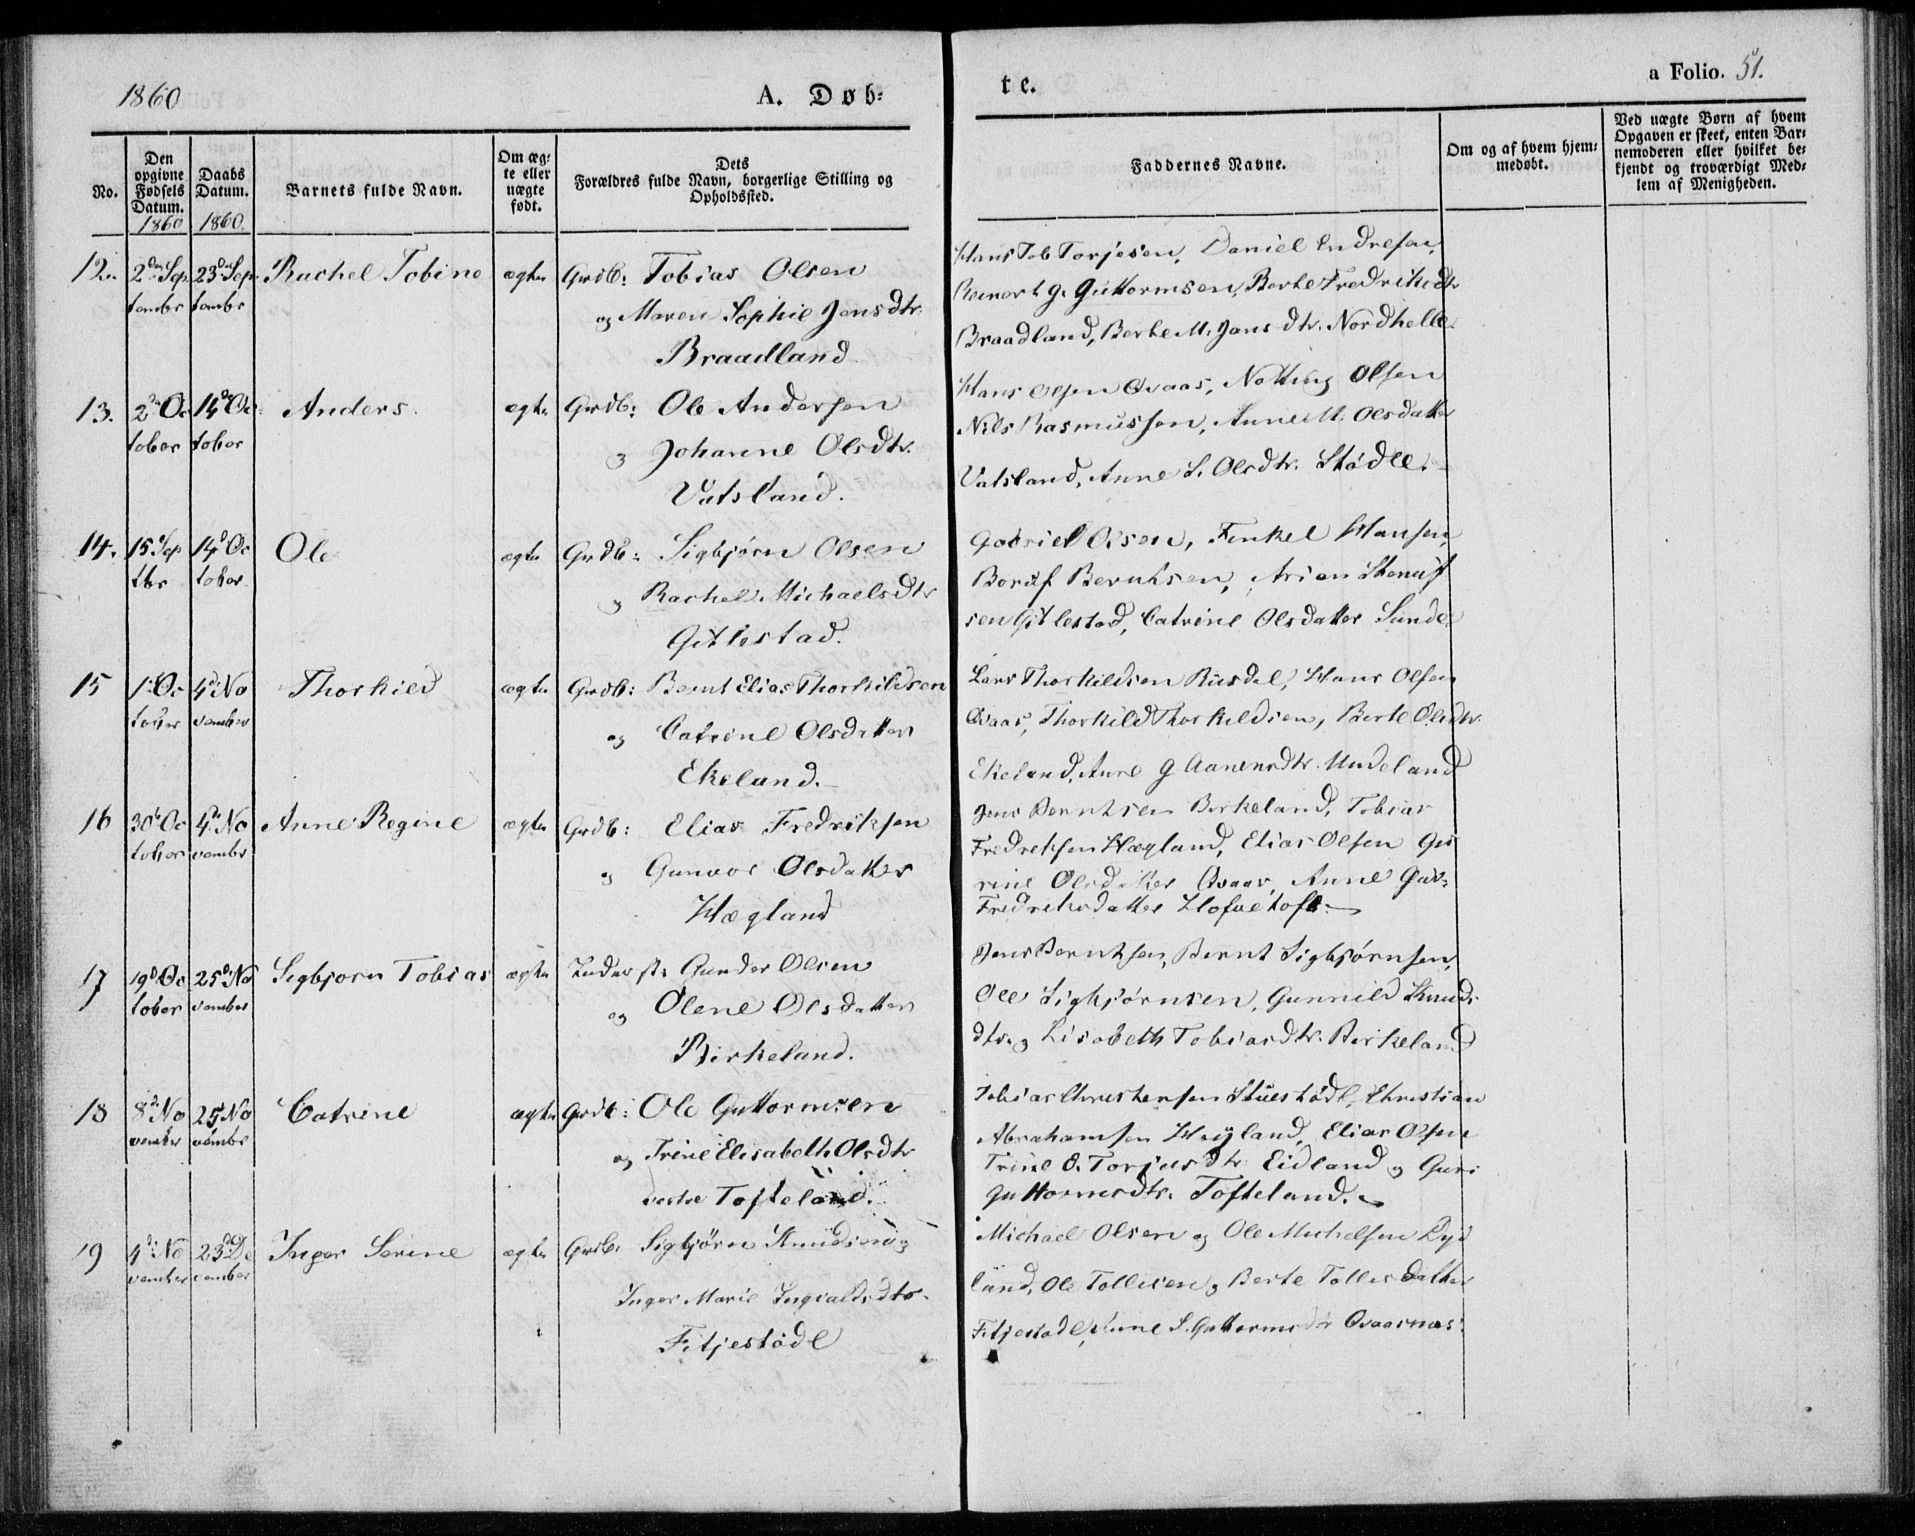 1860
A. Døb-
te.
a Folio. 51.
No.
Den opgivne Fødsels Datum.
1860
Daabs Datum.
1860.
Barnets fulde Navn.
Om æg-
te eller
uægte
født.
Dets
Forældres fulde Navn, borgerlige Stilling og
Opholdssted.
Faddernes Navne.
Om og af hvem hjem-
medøbt.
Ved uægte Børn af hvem
Opgaven er skeet, enten Bar-
nemoderen eller hvilket be-
kjendt og troværdigt Med-
lem af Menigheden.
12. 2den Sep 23de Sep Rachel Tobine ægte Grdb: Tobias Olsen
tember tember og Maren Sophie Jensdtr.
Braadland
Hans Tob Torjesen, Daniel Endresen,
G. Guttormsen, Berte Fredriksdtr
Braadland, Berte M. Jansdtr. Nordhelle
13. 2den Oc 14de Oc Anders ægte Grdb: Ole Andersen
tober tober og Johanne Olsdtr.
Vatsland.
Hans Olsen Qvaas, Olsen
Nils Rasmussen, Anne M. Olsdatter
Vatsland, Anne S. Olsdtr. Stødle.
14. 15de Sep 14de Oc Ole ægte Grdb: Sigbjørn Olsen
tbr tober og Rachel Michaelsdtr
Gitlestad.
Gabriel Olsen, Hansen,
Berntsen, Arien
sen Gitlestad, Catrine Olsdatter Sunde
15 1ste Oc 4de No Thorkild ægte Grdb: Bernt Elias Thorkildsen
tober vember og Catrine Olsdatter
Ekeland.
Lars Thorkildsen Rusdal, Hans Olsen
Qvaas, Thorkild Thorkildsen, Berte Olsdtr.
Ekeland, Anne G Aanensdtr. Undeland
16 30te Oc 4de No Anne Regine ægte Grdb: Elias Fredriksen
tober vember og Gunvor Olsdatter
Hægland
Jens Berntsen Birkeland, Tobias
Fredriksen Hægland, Elias Olsen Gu
rine Olsdatter Qvaas, Anne Gur-
Fredriksdatter
17 19de Oc 25de No Sigbjørn Tobias ægte Inderst: Gunder Olsen
tober vember og Olene Olsdatter
Birkeland.
Jens Berntsen, Bernt Sigbjørnsen,
Ole Sigbjørnsen, Gunnild Knuds
dtr. og Lisabeth Tobiasdtr. Birkeland
18 8de No 25de No Catrine ægte Grdb: Ole Guttormsen
vember vember og Trine Elisabeth Olsdtr
vestre Tofteland.
Tobias Christensen Stuestødl, Christian
Abrahamsen Høyland, Elias Olsen
Trine O. Torjusdtr Eidland og Guri
Guttormsdtr. Tofteland.
19 4de No 23de De Inger Serine ægte Grdb: Sigbjørn Knudsen og
vember cember Inger Marie Ingvaldsdtr.
Fitjestødl
Michael Olsen og Ole Michelsen Dyd
land, Ole Tollisen og Berte Tollisdatter
Fitjestødl, Anne S. Guttormsdtr Qvaasnæs.